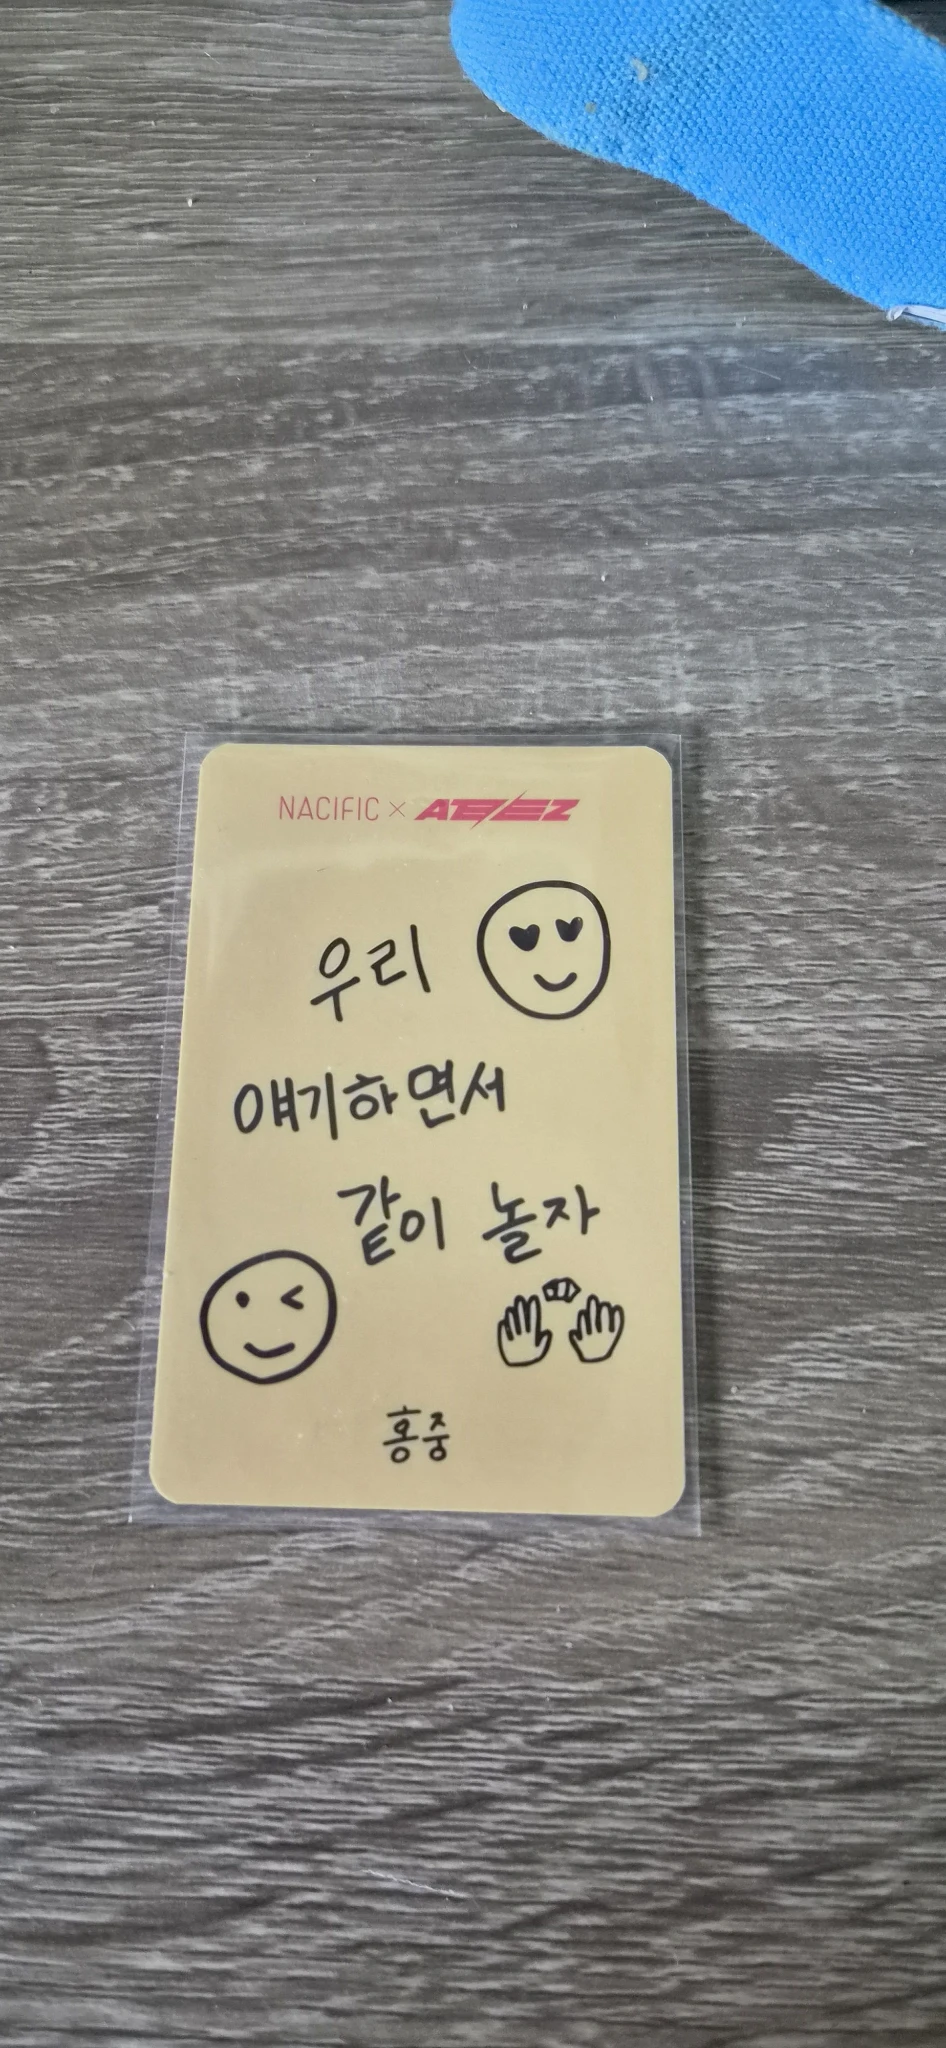 NACIFIC × ATEEZ
우리
얘기하면서
같이 놀자
홍중